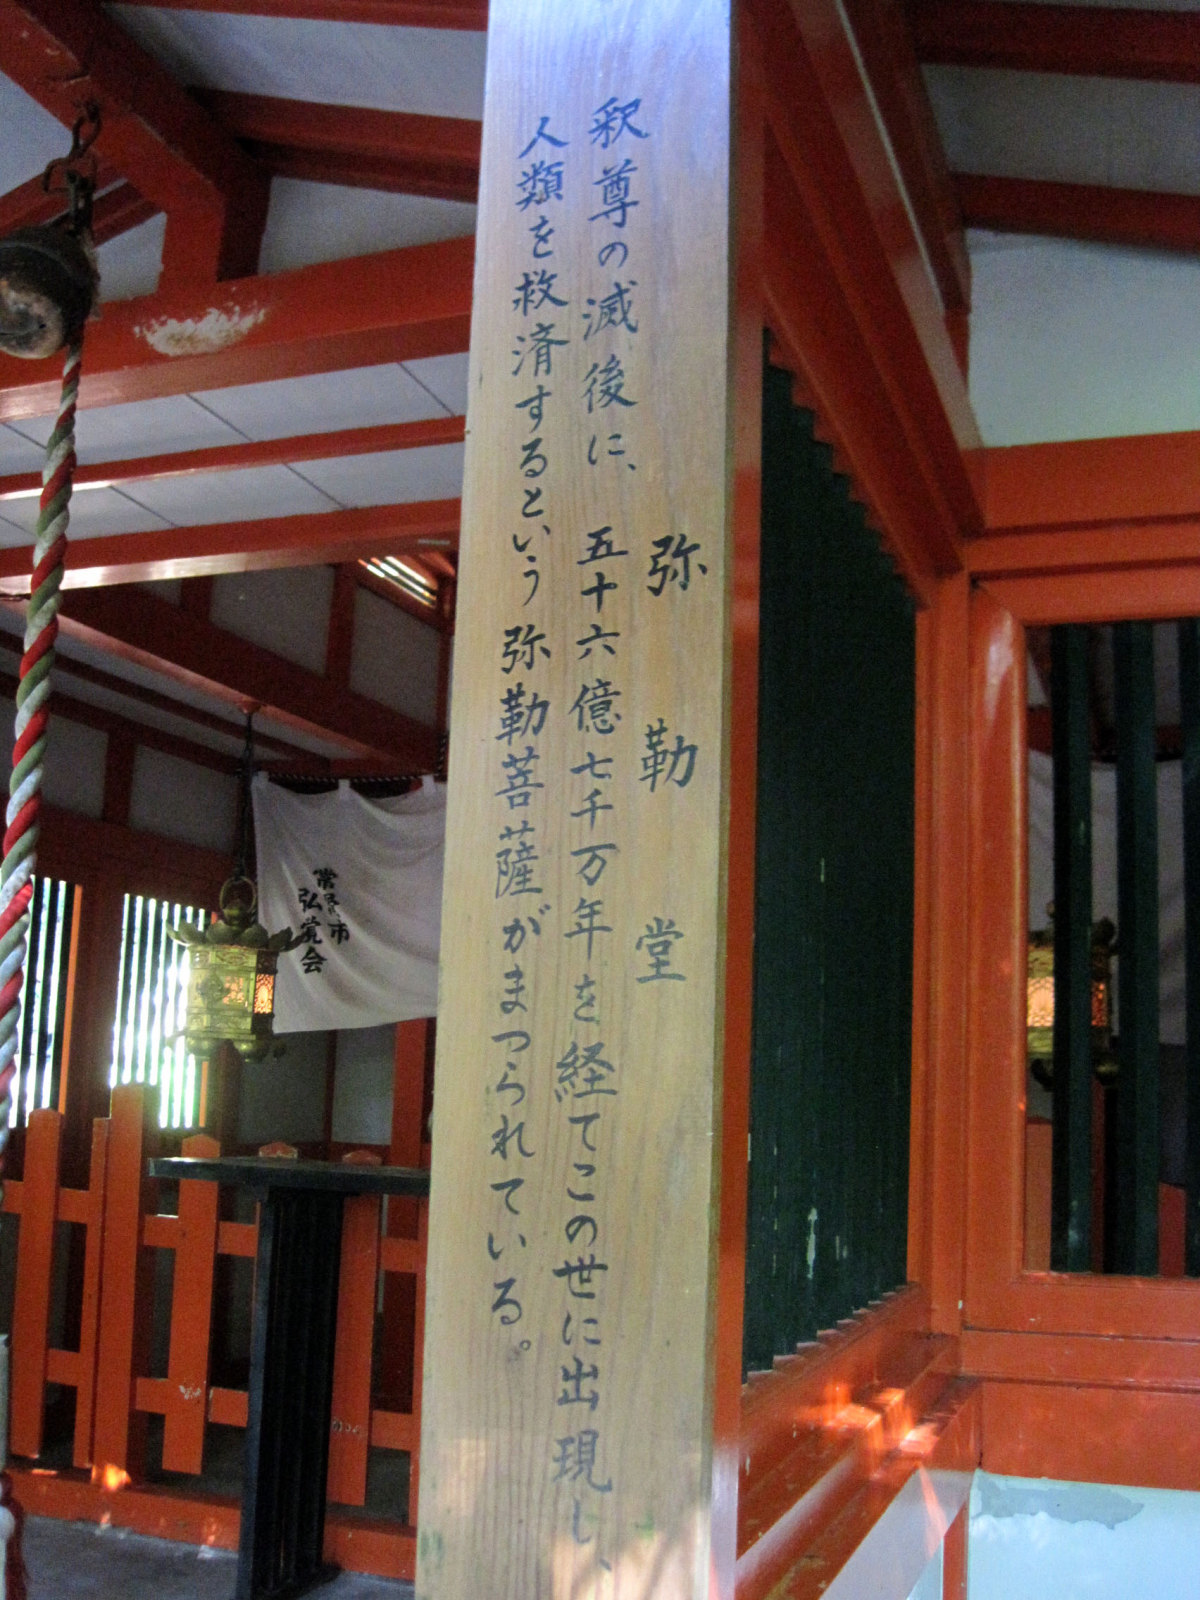 弥勒堂
釈尊の滅後に、五十六億七千万年を経てこの世に出現し、
人類を救済するという弥勒菩薩がまつられている。
市
弘覚会